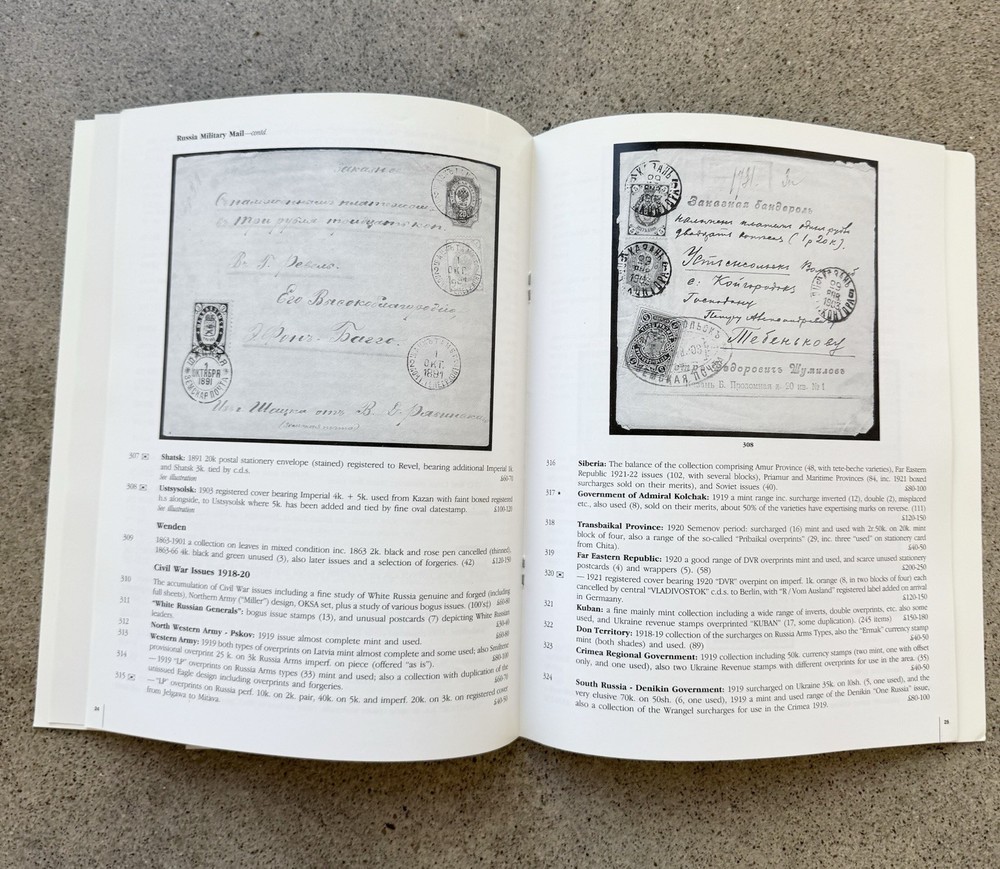 Russia Military Mail—contd.
заказное
Его Высокоблагородію,
1
ОКТ.
1891
1
ОКТЯБРЯ
1891
ЗЕМСКАЯ ПОЧТА
1
ОКТ.
1891
307 Shatsk: 1891 20k postal stationery envelope (stained) registered to Revel, bearing additional Imperial
and Shatsk 3k. tied by c.d.s.
See illustration £60-70
308 Ustsysolsk: 1903 registered cover bearing Imperial 4k. + 5k. used from Kazan with faint boxed registered
h.s alongside, to Ustsysolsk where 5k. has been added and tied by fine oval datestamp. £100-120
See illustration
Wenden
309 1863-1901 a collection on leaves in mixed condition inc. 1863 2k. black and rose pen cancelled (thinned),
1863-66 4k. black and green unused (3), also later issues and a selection of forgeries. (42) £120-150
Civil War Issues 1918-20
310 The accumulation of Civil War issues including a fine study of White Russia genuine and forged (including
full sheets), Northern Army ("Miller") design, OKSA set, plus a study of various bogus issues. (100's) £60-80
311 "White Russian Generals": bogus issue stamps (13), and unusual postcards (7) depicting White Russian
leaders. £30-40
312 North Western Army - Pskov: 1919 issue almost complete mint and used. £60-80
313 Western Army: 1919 both types of overprints on Latvia mint almost complete and some used; also Smiltene
provisional overprint 25 k. on 3k Russia Arms imperf. on piece (offered "as is"). £80-100
314 — 1919 "LP" overprints on Russia Arms types (33) mint and used; also a collection with duplication of the
unissued Eagle design including overprints and forgeries. £60-70
315 — "LP" overprints on Russia perf. 10k. on 2k. pair, 40k. on 5k. and imperf. 20k. on 3k. on registered cover
from Jelgawa to Mitava. £40-50
24
1731.
Заказная бандероль
наложен. платежа один рубль
двадцать копеек (1р 20к).
с. Койгородок
Господину
Тебенькову
ЗЕМСКАЯ ПОЧТА
308
316 Siberia: The balance of the collection comprising Amur Province (48, with tete-beche varieties), Far Eastern
Republic 1921-22 issues (102, with several blocks), Priamur and Maritime Provinces (84, inc. 1921 boxed
surcharges sold on their merits), and Soviet issues (40). £80-100
317 • Government of Admiral Kolchak: 1919 a mint range inc. surcharge inverted (12), double (2), misplaced
etc., also used (8), sold on their merits, about 50% of the varieties have expertising marks on reverse. (111)
£120-150
318 Transbaikal Province: 1920 Semenov period: surcharged (16) mint and used with 2r.50k. on 20k. mint
block of four, also a range of the so-called "Pribaikal overprints" (29, inc. three "used" on stationery card
from Chita). £40-50
319 Far Eastern Republic: 1920 a good range of DVR overprints mint and used, and scarce unused stationery
postcards (4) and wrappers (5). (58) £200-250
320 — 1921 registered cover bearing 1920 "DVR" overpint on imperf. 1k. orange (8, in two blocks of four) each
cancelled by central "VLADIVOSTOK" c.d.s. to Berlin, with "R / Vom Ausland" registered label added on arrival
in Germaany. £120-150
321 Kuban: a fine mainly mint collection including a wide range of inverts, double overprints, etc. also some
used, and Ukraine revenue stamps overprinted "KUBAN" (17, some duplication). (245 items) £150-180
322 Don Territory: 1918-19 collection of the surcharges on Russia Arms Types, also the "Ermak" currency stamp
mint (both shades) and used. (89) £40-50
323 Crimea Regional Government: 1919 collection including 50k. currency stamps (two mint, one with offset
only, and one used), also two Ukraine Revenue stamps with different overprints for use in the area. (35)
£40-50
324 South Russia - Denikin Government: 1919 surcharged on Ukraine 35k. on 10sh. (5, one used), and the
very elusive 70k. on 50sh. (6, one used), 1919 a mint and used range of the Denikin "One Russia" issue,
also a collection of the Wrangel surcharges for use in the Crimea 1919. £80-100